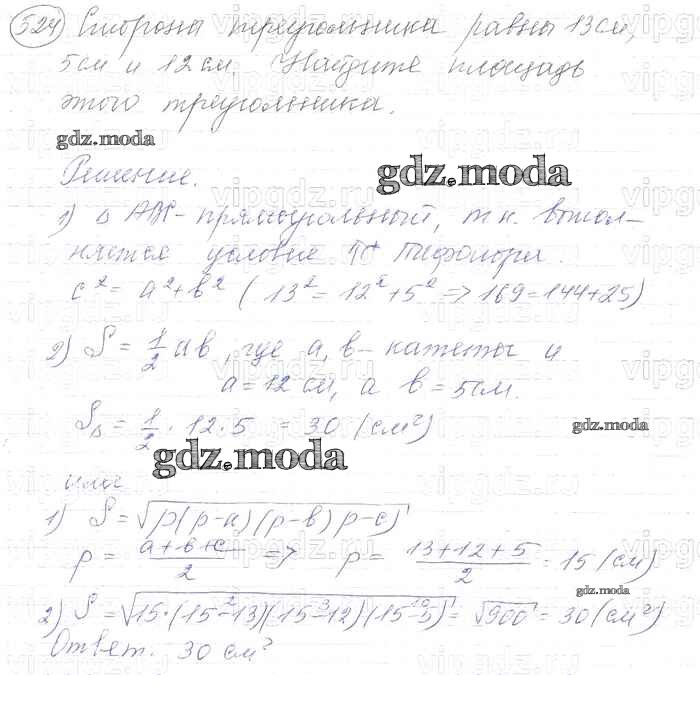 524 Стороны треугольника равны 13 см,
5 см и 12 см. Найдите площадь
этого треугольника.
gdz.moda
Решение.
gdz.moda
1) △ АВС - прямоугольный, т.к. выпол-
няется условие Т Пифагора.
c² = a² + b² (13² = 12² + 5² => 169 = 144 + 25)
2) S = 1/2 ab, где a, b - катеты и
a = 12 см, а b = 5 см.
S△ = 1/2 · 12 · 5 = 30 (см²)
gdz.moda
gdz.moda
или
1) S = √p(p-a)(p-b)p-c)
p = a+b+c/2 => p = 13+12+5/2 = 15 (см)
gdz.moda
2) S = √15·(15-13)(15-12)(15-5) = √900 = 30 (см²)
Ответ. 30 см²